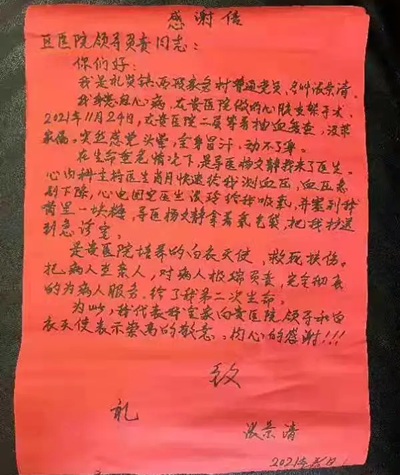 感谢信
县医院领导负责同志：
你们好：
我是礼贤镇西段家务村普通党员，名叫张景清。
我患冠心病，在贵医院做的心脏支架手术，
2021年11月24日，在贵医院二层等着抽血复查，没等
来，突然感觉头晕，全身冒汗，动不了身。
在生命垂危情况下，是导医杨文静找来了医生。
心内科主持医生肖月快速给我测血压，血压急
剧下降，心电图室医生给我吸氧，并塞到我
嘴里一块糖，导医杨文静拿着氧气袋，把我护送
到急诊室。
是贵医院培养的白衣天使，救死扶伤。
把病人当亲人，对病人极端负责，完全彻底
的为病人服务，给了我第二次生命。
为此，我代表我全家向贵医院领导和白
衣天使表示崇高的敬意，内心的感谢!!!
致
礼
张景清
2021年